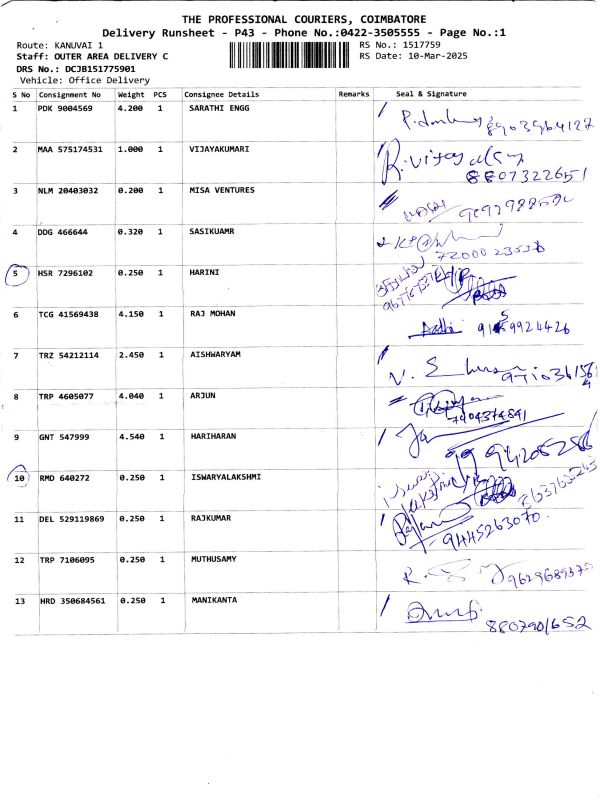 THE PROFESSIONAL COURIERS, COIMBATORE
Delivery Runsheet - P43 - Phone No.:0422-3505555 - Page No.:1
Route: KANUVAI 1
RS No.: 1517759
Staff: OUTER AREA DELIVERY C
RS Date: 10-Mar-2025
DRS No.: DCJB151775901
Vehicle: Office Delivery
S No Consignment No Weight PCS Consignee Details Remarks Seal & Signature
1 PDK 9004569 4.200 1 SARATHI ENGG
8903964127
2 MAA 575174531 1.000 1 VIJAYAKUMARI
8807322651
3 NLM 20403032 0.200 1 MISA VENTURES
4 DDG 466644 0.320 1 SASIKUAMR
5 HSR 7296102 0.250 1 HARINI
6 TCG 41569438 4.150 1 RAJ MOHAN
7 TRZ 54212114 2.450 1 AISHWARYAM
8 TRP 4605077 4.040 1 ARJUN
9 GNT 547999 4.540 1 HARIHARAN
10 RMD 640272 0.250 1 ISWARYALAKSHMI
11 DEL 529119869 0.250 1 RAJKUMAR
9445263070
12 TRP 7106095 0.250 1 MUTHUSAMY
13 HRD 350684561 0.250 1 MANIKANTA
8807901652